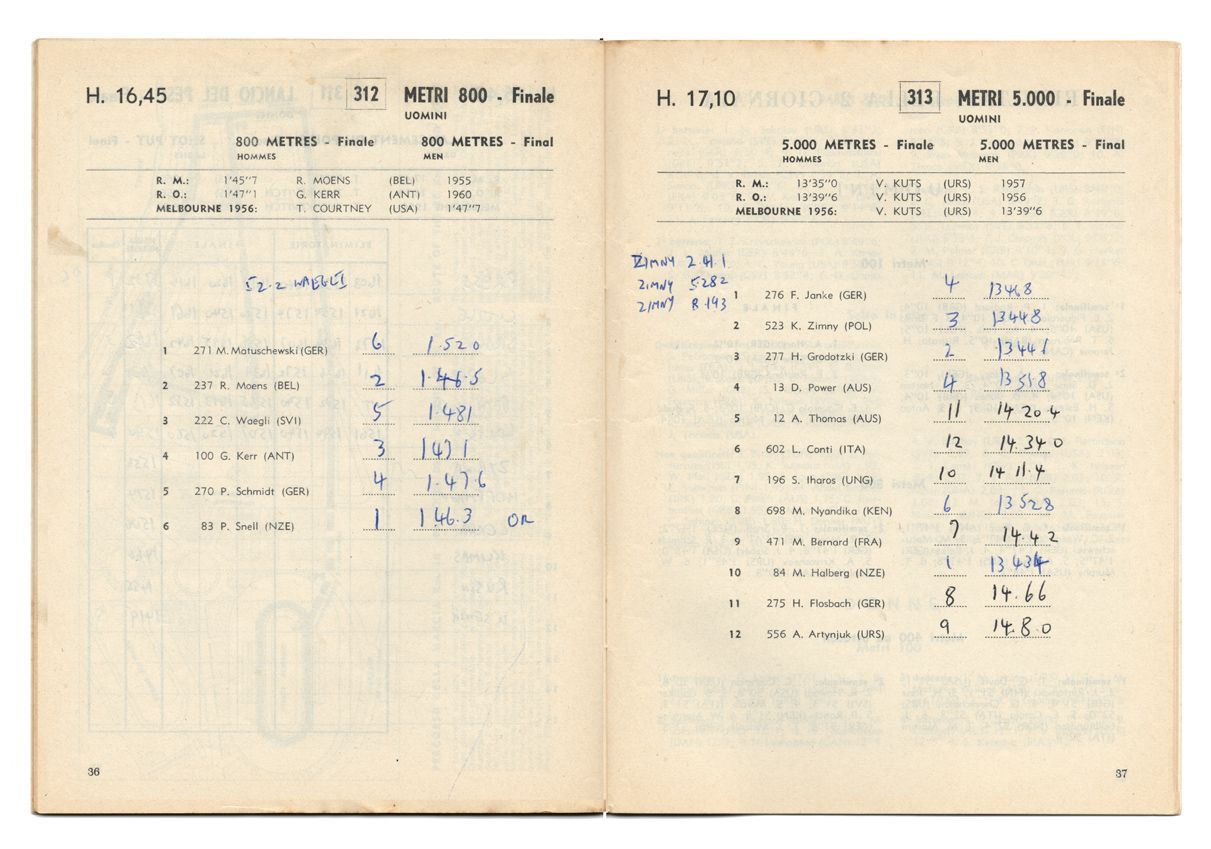 H. 16,45 312 METRI 800 - Finale
UOMINI
800 METRES - Finale 800 METRES - Final
HOMMES MEN
R. M.: 1'45"7 R. MOENS (BEL) 1955
R. O.: 1'47"1 G. KERR (ANT) 1960
MELBOURNE 1956: T. COURTNEY (USA) 1'47"7
52.2 WAEGLI
1 271 M. Matuschewski (GER) 6 1.520
2 237 R. Moens (BEL) 2 1.46.5
3 222 C. Waegli (SVI) 5 1.481
4 100 G. Kerr (ANT) 3 1471
5 270 P. Schmidt (GER) 4 1.47.6
6 83 P. Snell (NZE) 1 146.3 OR
36
H. 17,10 313 METRI 5.000 - Finale
UOMINI
5.000 METRES - Finale 5.000 METRES - Final
HOMMES MEN
R. M.: 13'35"0 V. KUTS (URS) 1957
R. O.: 13'39"6 V. KUTS (URS) 1956
MELBOURNE 1956: V. KUTS (URS) 13'39"6
ZIMNY 2.41.1
ZIMNY 5.282
ZIMNY 8.193
1 276 F. Janke (GER) 4 13468
2 523 K. Zimny (POL) 3 13448
3 277 H. Grodotzki (GER) 2 13446
4 13 D. Power (AUS) 4 13518
5 12 A. Thomas (AUS) 11 14 20 4
6 602 L. Conti (ITA) 12 14.34 0
7 196 S. Iharos (UNG) 10 14 11.4
8 698 M. Nyandika (KEN) 6 13528
9 471 M. Bernard (FRA) 7 14.4 2
10 84 M. Halberg (NZE) 1 13434
11 275 H. Flosbach (GER) 8 14.66
12 556 A. Artynjuk (URS) 9 14.8.0
37